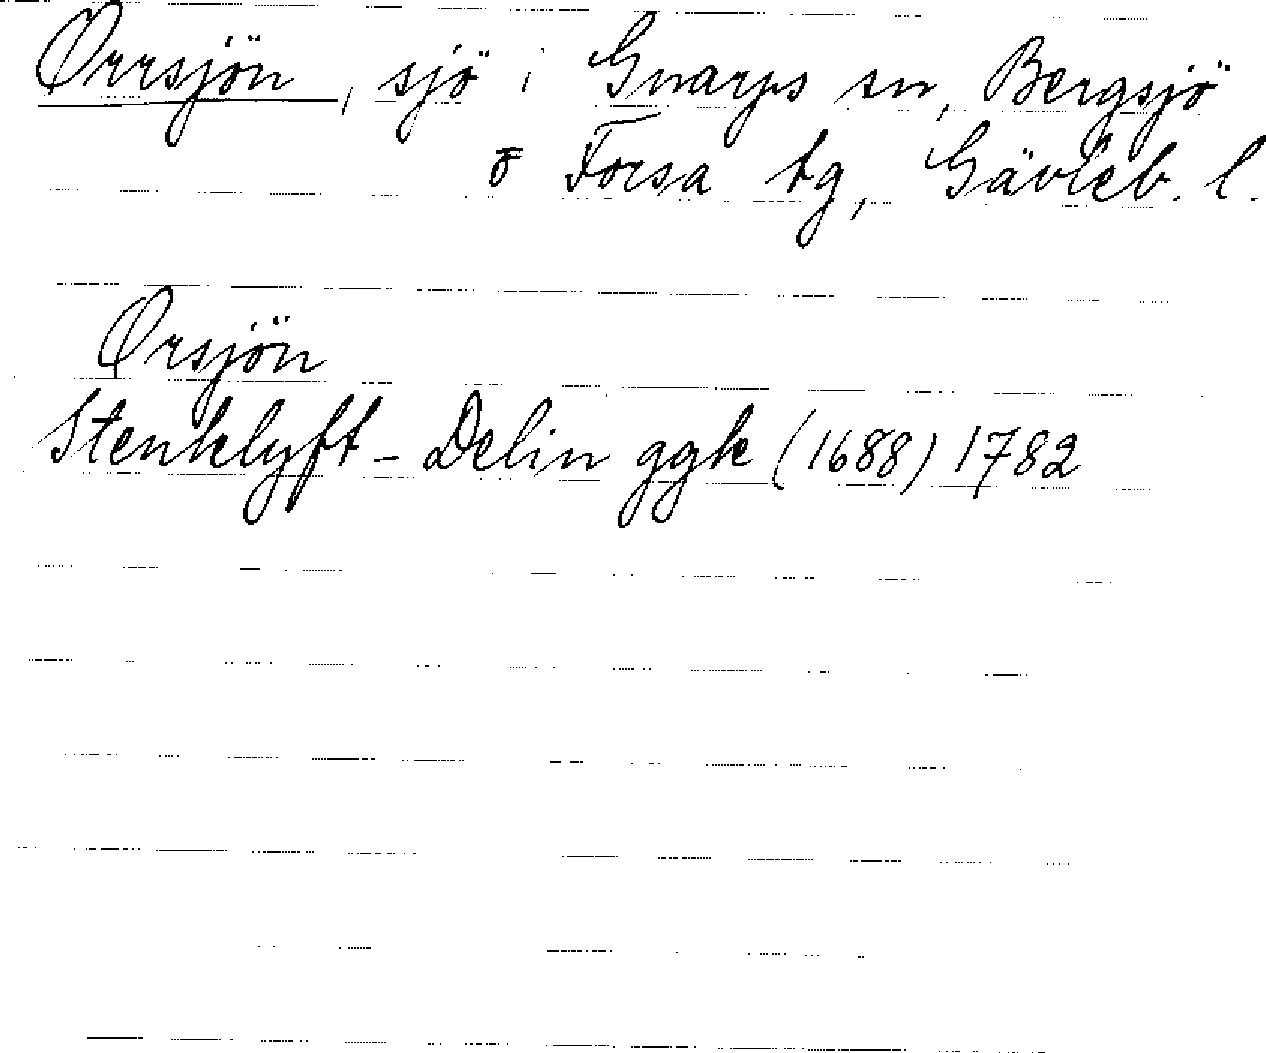 Orrsjön, sjö i Gnarps sn, Bergsjö
o Forsa tg, Gävleb. l.
Orsjön
Stenklyft - Delin ggk (1688) 1782